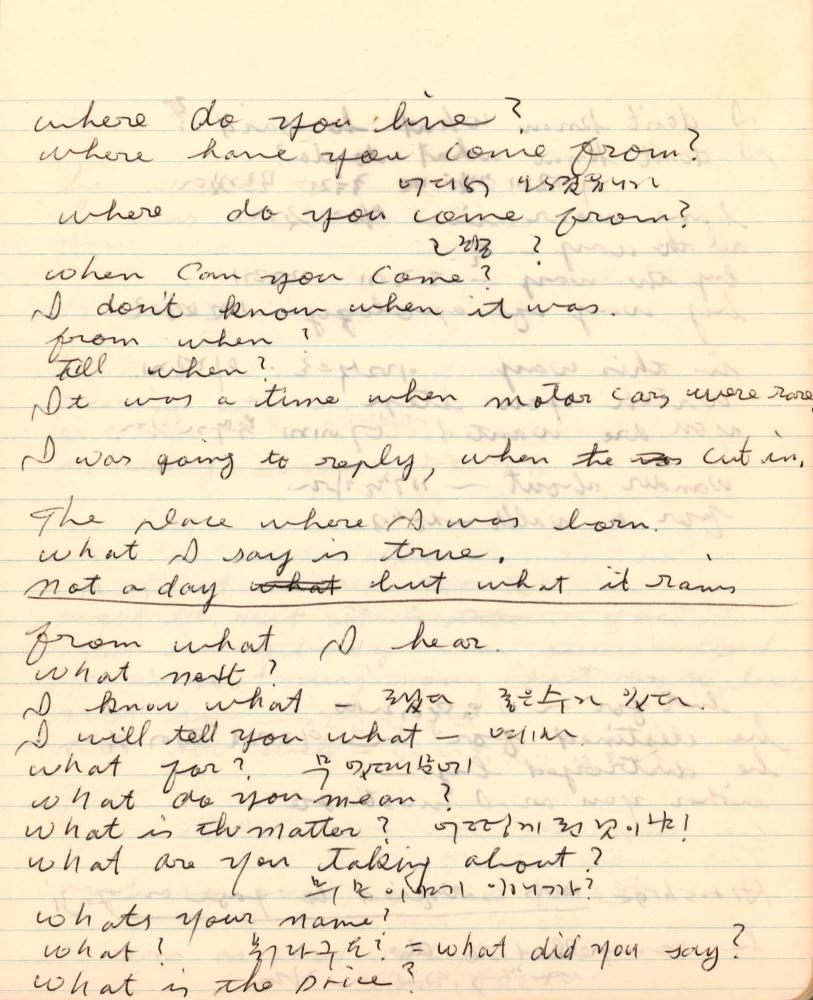 where do you live?
where have you come from?
어디서 오셨습니까
where do you come from?
고향 ?
when can you come?
I don't know when it was.
from when?
till when?
It was a time when motor cars were rare
I was going to reply, when he cut in.
The place where I was born.
what I say is true.
not a day what but what it rains
from what I hear.
what next?
I know what – 좋은수가 있다.
I will tell you what –
what for? 무엇때문에
what do you mean?
what is the matter? 어떻게 된 것이냐!
what are you taking about?
무슨 이야기 이애가?
whats your name?
what? 뭐라구요? = what did you say?
what is the price?